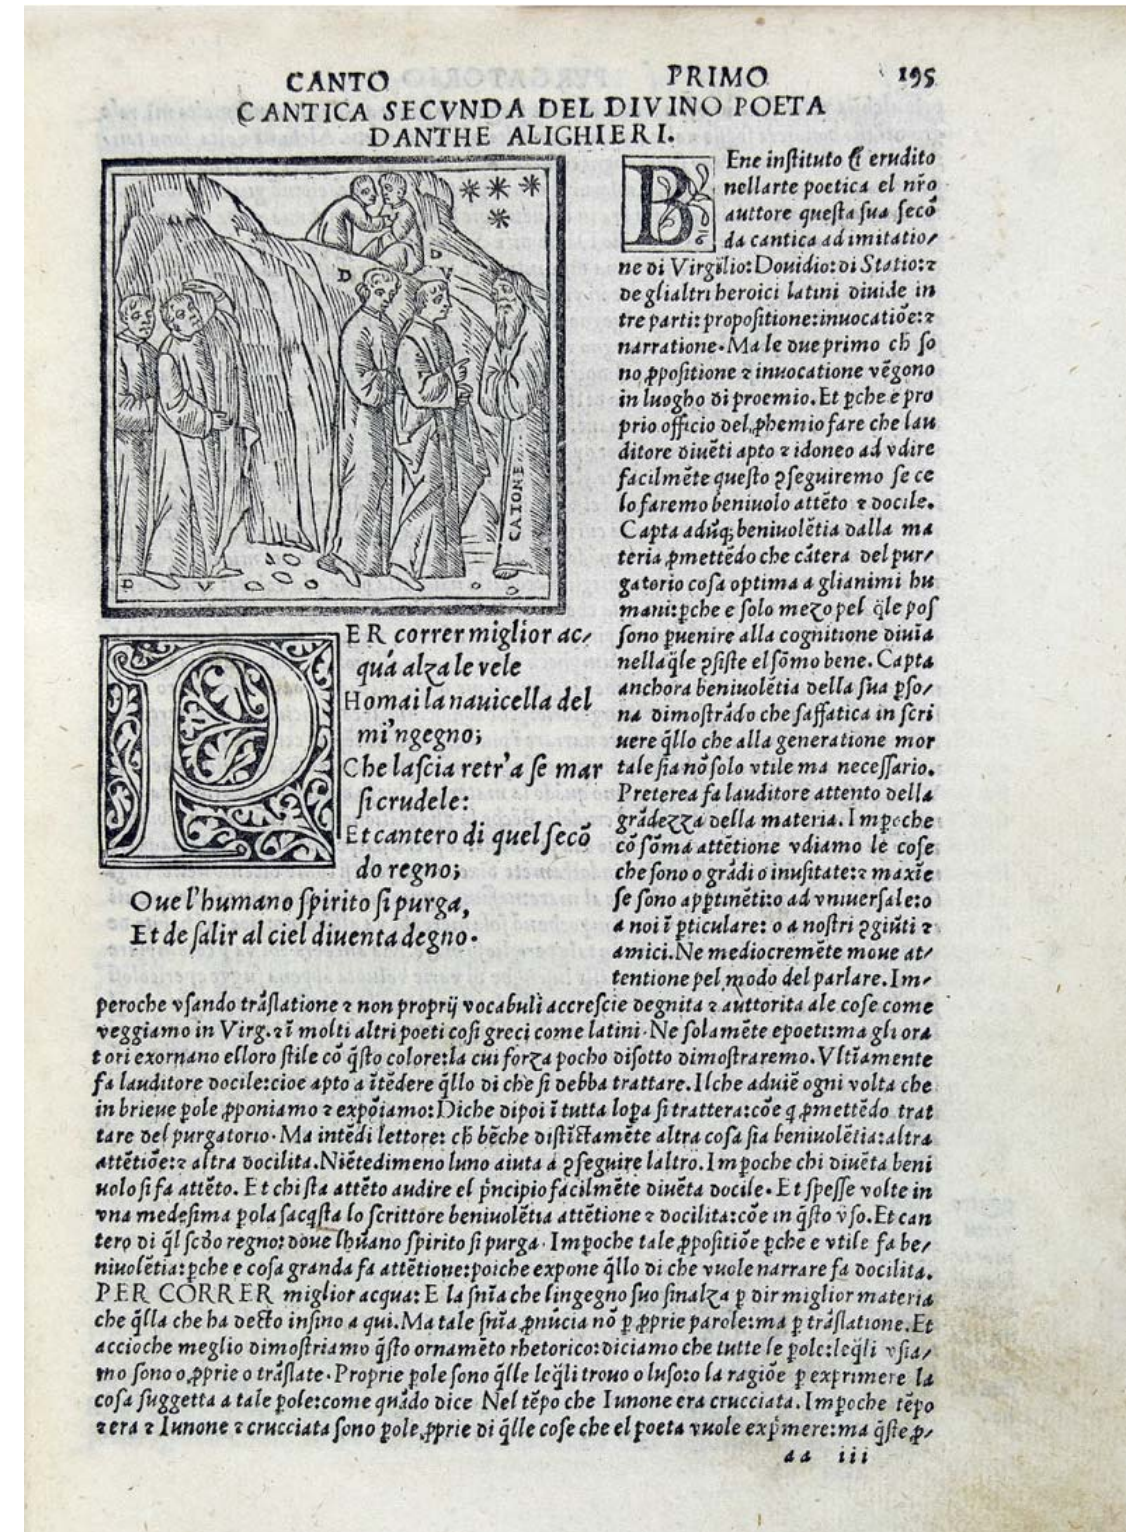 CANTO PRIMO 195
CANTICA SECVNDA DEL DIVINO POETA
DANTHE ALIGHIERI.
D V
D V
CATONE
PER correr miglior ac/
qua alza le vele
Homai la nauicella del
mi'ngegno;
Che lascia retr'a se mar
si crudele:
Et cantero di quel secō
do regno;
Oue l'humano spirito si purga,
Et de salir al ciel diuenta degno.
BEne instituto & erudito
nellarte poetica el nr̄o
auttore questa sua secō
da cantica ad imitatio/
ne di Virgilio: Douidio: di Statio: ⁊
de glialtri heroici latini diuide in
tre parti: propositione: inuocatiōe: ⁊
narratione. Ma le due primo ch̄ so
no ꝓpositione ⁊ inuocatione vēgono
in luogho di proemio. Et ꝑche e pro
prio officio del ꝓhemio fare che lau
ditore diuēti apto ⁊ idoneo ad vdire
facilmēte questo ꝯseguiremo se ce
lo faremo beniuolo attēto ⁊ docile.
Capta adūq; beniuolētia dalla ma
teria ꝓmettēdo che cātera del pur/
gatorio cosa optima a glianimi hu
mani: ꝑche e solo mezo pel q̄le pos
sono ꝑuenire alla cognitione diuīa
nella q̄le ꝯsiste el sōmo bene. Capta
anchora beniuolētia della sua ꝑso/
na dimostrādo che saffatica in scri
uere q̄llo che alla generatione mor
tale sia nō solo vtile ma necessario.
Preterea fa lauditore attento della
grādezza della materia. Imꝑoche
cō sōma attētione vdiamo le cose
che sono o grādi o inusitate: ⁊ maxīe
se sono apꝑtinēti: o ad vniuersale: o
a noi ī ꝑticulare: o a nostri ꝯgiūti ⁊
amici. Ne mediocremēte moue at/
tentione pel modo del parlare. Im/
peroche vsando trāslatione ⁊ non proprij vocabuli accrescie degnita ⁊ auttorita ale cose come
veggiamo in Virg. ⁊ ī molti altri poeti cosi greci come latini. Ne solamēte epoeti: ma gli ora
tori exornano elloro stile cō q̄sto colore: la cui forza pocho disotto dimostraremo. Vltīamente
fa lauditore docile: cioe apto a ītēdere q̄llo di che si debba trattare. Ilche aduiē ogni volta che
in brieue ꝑole ꝓponiamo ⁊ expōiamo: Diche dipoi ī tutta loꝑa si trattera: cōe q ꝓmettēdo trat
tare del purgatorio. Ma intēdi lettore: ch̄ bēche distīctamēte altra cosa sia beniuolētia: altra
attētiōe: ⁊ altra docilita. Niētedimeno luno aiuta a ꝯseguire laltro. Imꝑoche chi diuēta beni
uolo si fa attēto. Et chi sta attēto audire el p̄ncipio facilmēte diuēta docile. Et spesse volte in
vna medesima ꝑola sacq̄sta lo scrittore beniuolētia attētione ⁊ docilita: cōe in q̄sto v̄so. Et can
tero di q̄l scd̄o regno: doue lhūano spirito si purga. Imꝑoche tale ꝓpositiōe ꝑche e vtile fa be/
niuolētia: ꝑche e cosa granda fa attētione: poiche expone q̄llo di che vuole narrare fa docilita.
PER CORRER miglior acqua: E la sn̄ia che lingegno suo sinalza ꝑ dir miglior materia
che q̄lla che ha decto insino a qui. Ma tale sn̄ia ꝓnūcia nō ꝑ ꝓprie parole: ma ꝑ trāslatione. Et
accioche meglio dimostriamo q̄sto ornamēto rhetorico: diciamo che tutte le ꝑole: leq̄li vsia/
mo sono o ꝓprie o trāslate. Proprie ꝑole sono q̄lle leq̄li trouo o luso: o la ragiōe ꝑ exprimere la
cosa suggetta a tale ꝑole: come quādo dice Nel tēpo che Iunone era crucciata. Imꝑoche tēpo
⁊ era ⁊ Iunone ⁊ crucciata sono ꝑole ꝓprie di q̄lle cose che el poeta vuole exp̄mere: ma q̄ste ꝓ/
aa iii